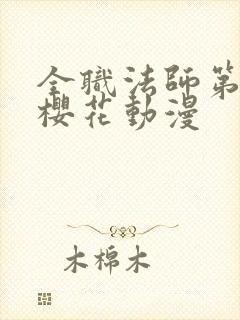 全職法師第
櫻花動漫
木棉木